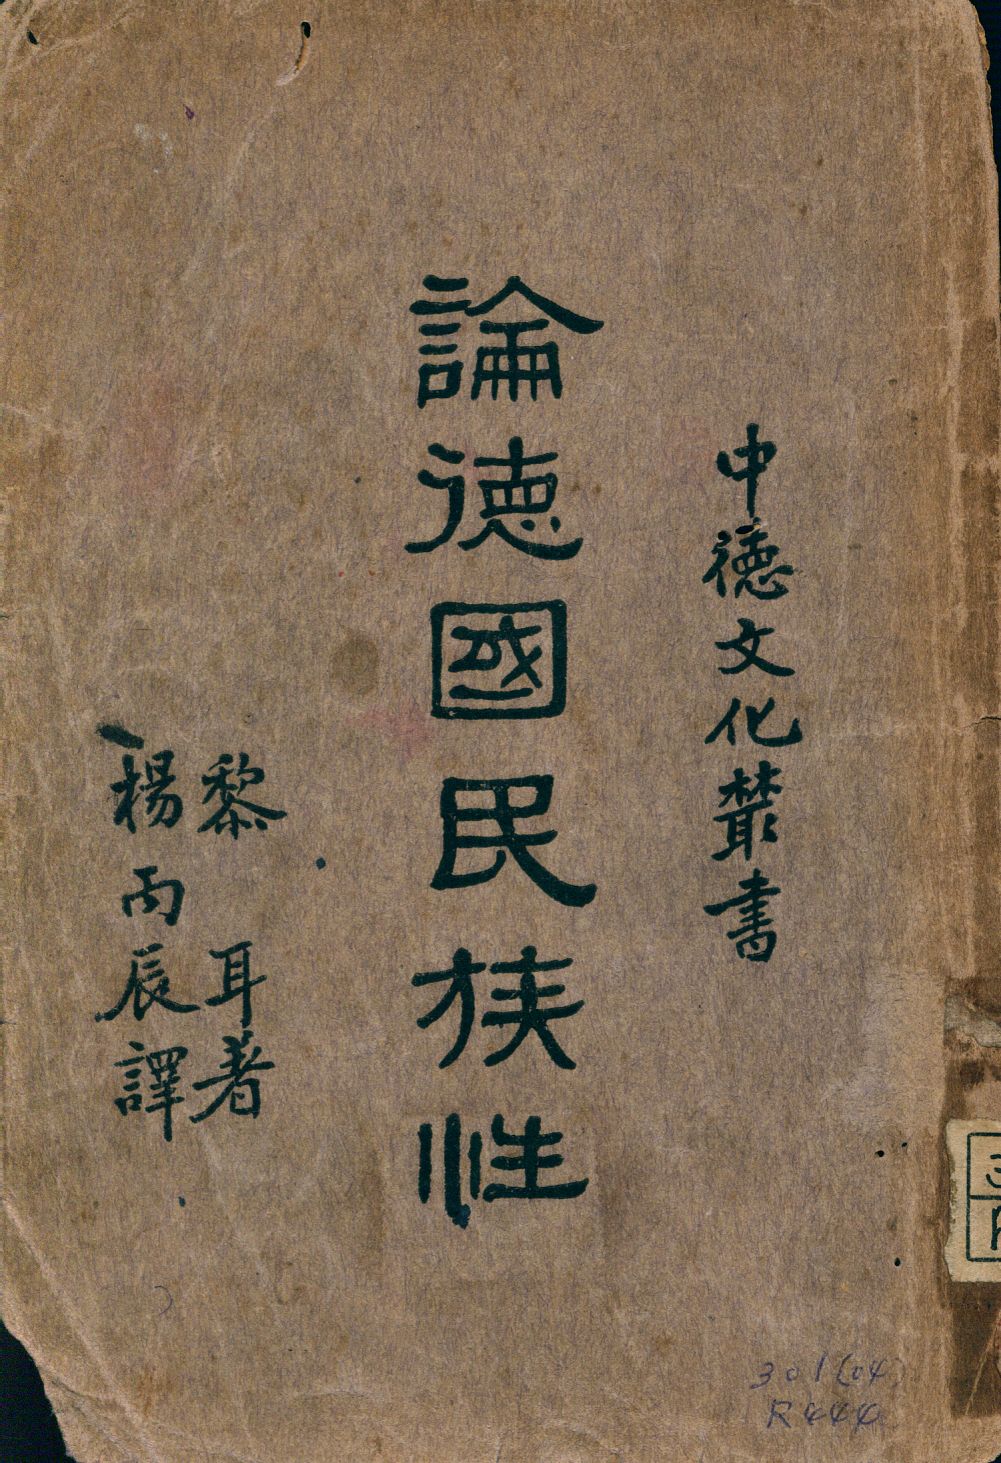 中德文化叢書
論德國民族性
黎耳著
楊丙辰譯
301(04)
R444